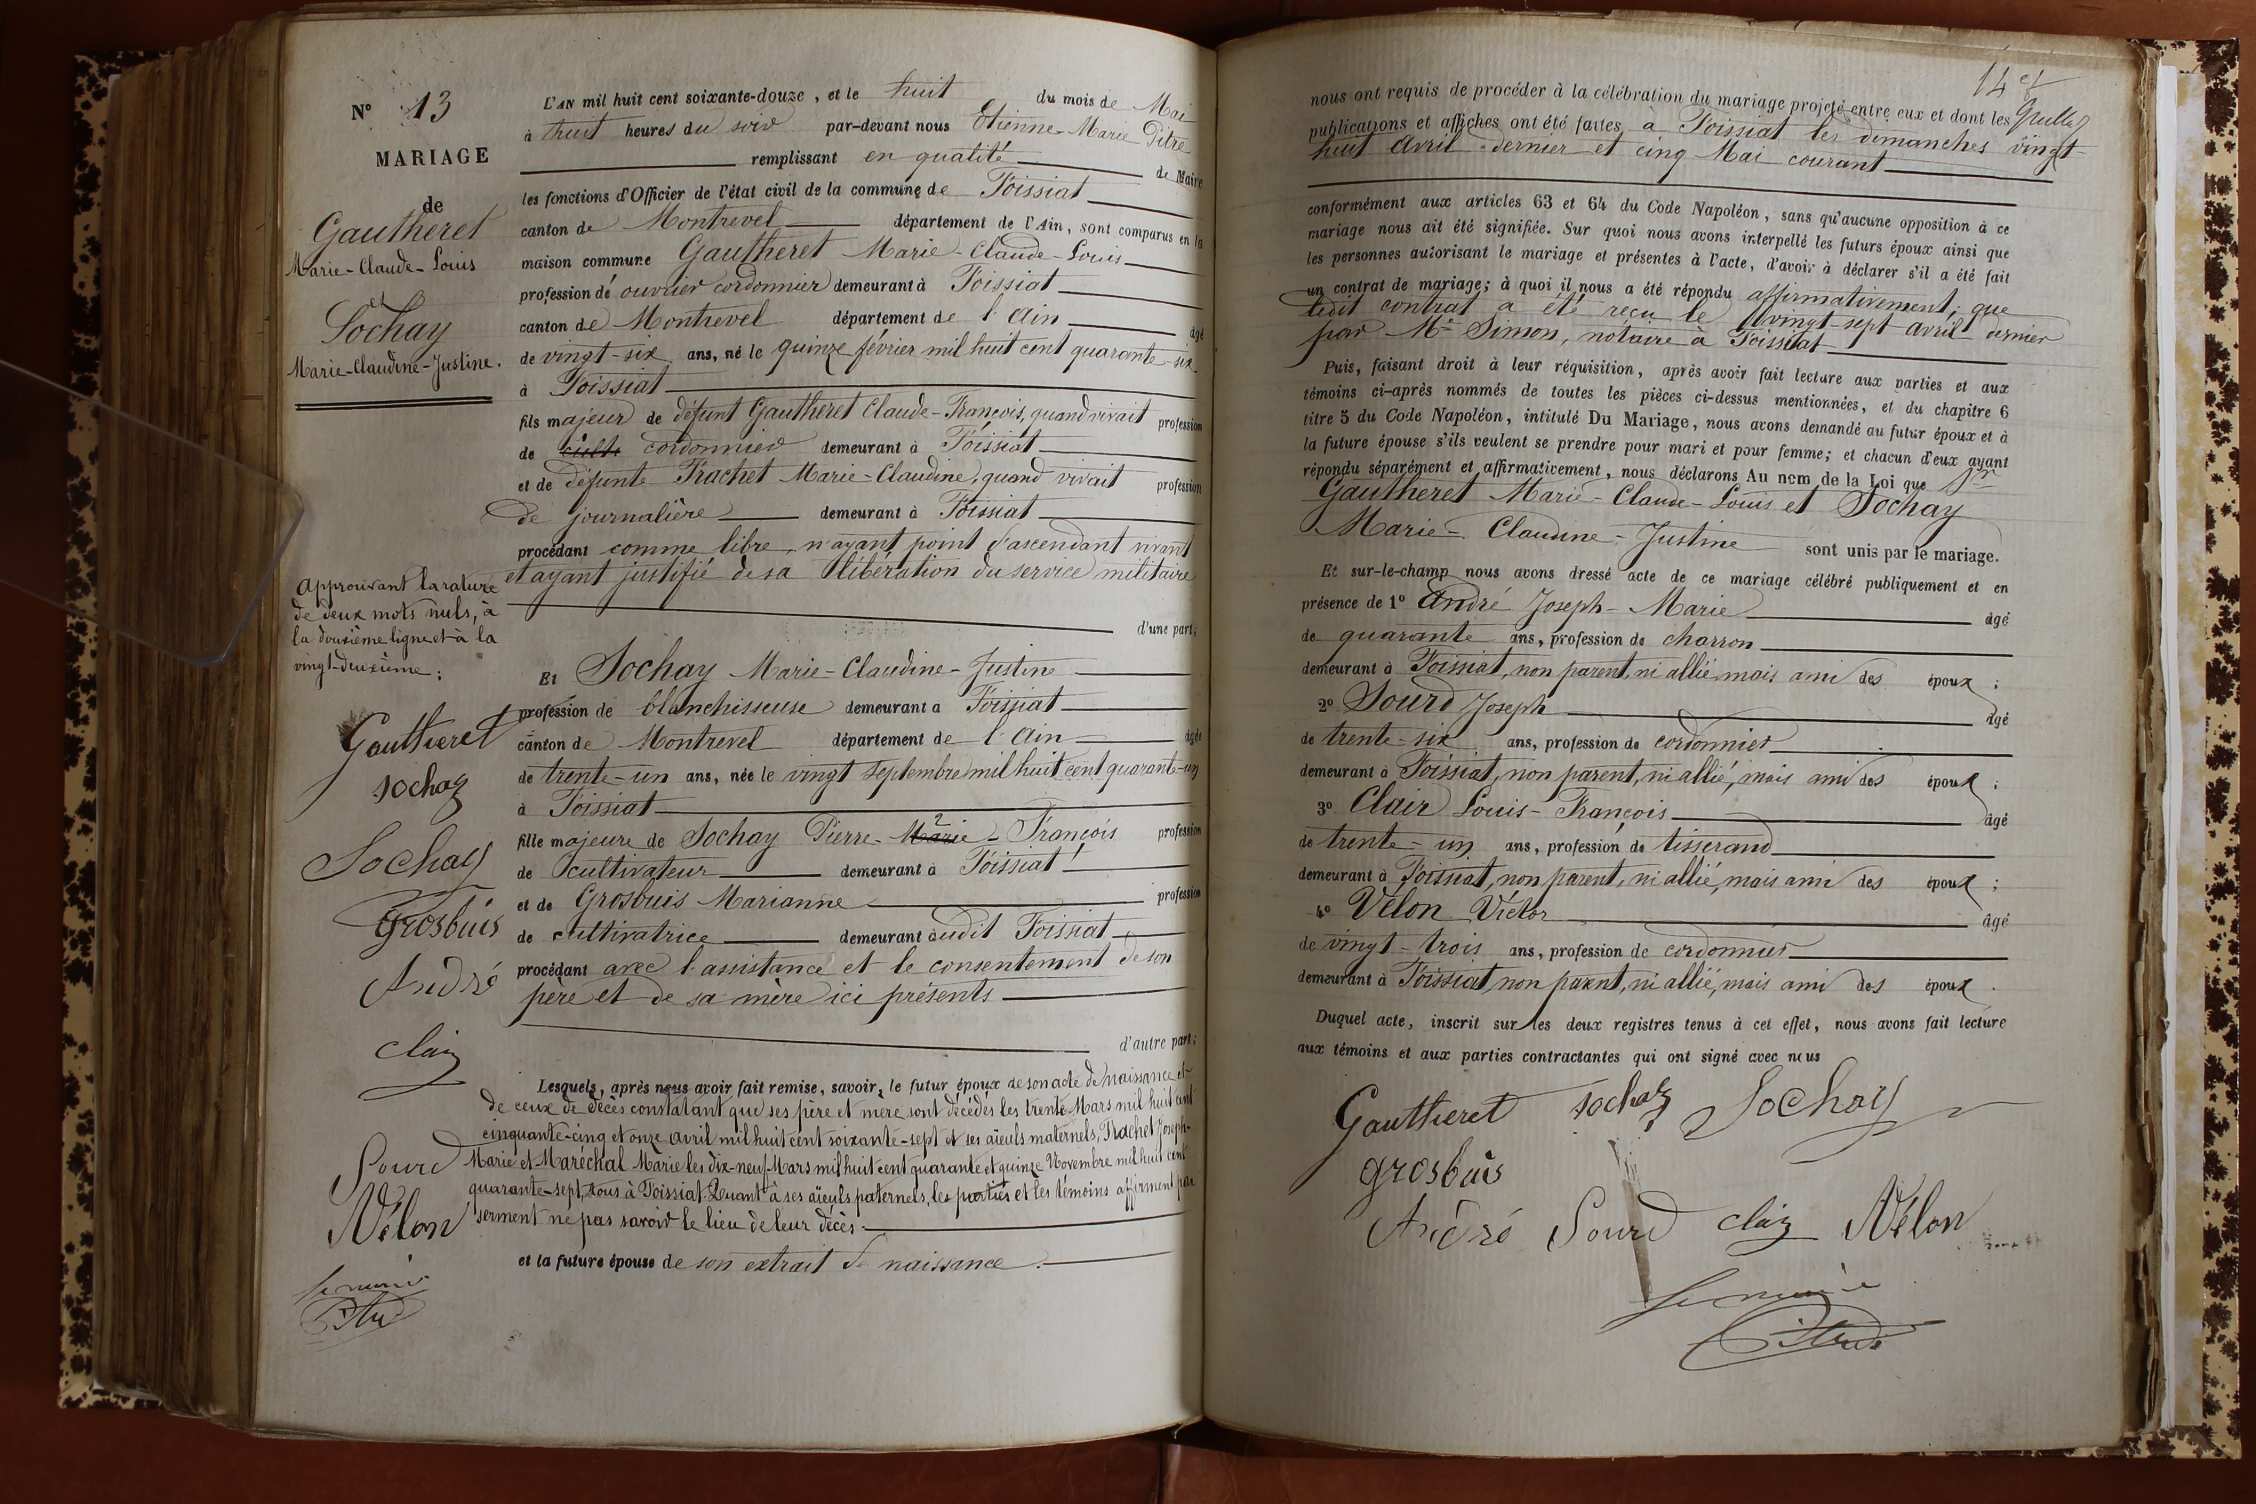 N° 13
MARIAGE
de
Gautheret
Marie-Claude-Louis
et
Sochay
Marie-Claudine-Justine.
Approuvant la rature
de deux mots nuls, à
la douzième ligne et à la
vingt-deuxième :
Gautheret
Sochay
Sochay
Grosbuis
André
Clair
Sourd
Vélon
Le maire
Pitre
L'AN mil huit cent soixante-douze, et le huit du mois de Mai
à huit heures du soir par-devant nous Etienne-Marie Pitre
remplissant en qualité de Maire
les fonctions d'Officier de l'état civil de la commune de Foissiat
canton de Montrevel département de l'Ain, sont comparus en la
maison commune Gautheret Marie-Claude-Louis
profession d' ouvrier cordonnier demeurant à Foissiat
canton de Montrevel département de l'Ain âgé
de vingt-six ans, né le quinze février mil huit cent quarante-six
à Foissiat
fils majeur de défunt Gautheret Claude-François, quand vivait profession
de cordonnier demeurant à Foissiat
et de défunte Trachet Marie-Claudine, quand vivait profession
de journalière demeurant à Foissiat
procédant comme libre, n'ayant point d'ascendant vivant
et ayant justifié de sa libération du service militaire
d'une part;
Et Sochay Marie-Claudine-Justine
profession de blanchisseuse demeurant à Foissiat
canton de Montrevel département de l'Ain âgée
de trente-un ans, née le vingt septembre mil huit cent quarante-un
à Foissiat
fille majeure de Sochay Pierre-Marie-François profession
de cultivateur demeurant à Foissiat
et de Grosbuis Marianne profession
de cultivatrice demeurant audit Foissiat
procédant avec l'assistance et le consentement de son
père et de sa mère ici présents
d'autre part;
Lesquels, après nous avoir fait remise, savoir, le futur époux de son acte de naissance et
de ceux de décès constatant que ses père et mère sont décédés les trente Mars mil huit cent
cinquante-cinq et onze avril mil huit cent soixante-sept et ses aïeuls maternels, Trachet Joseph-
Marie et Maréchal Marie les dix-neuf Mars mil huit cent quarante et quinze Novembre mil huit cent
quarante-sept, tous à Foissiat. Quant à ses aïeuls paternels, les parties et les témoins affirment par
serment ne pas savoir le lieu de leur décès.
et la future épouse de son extrait de naissance.
14
nous ont requis de procéder à la célébration du mariage projeté entre eux et dont les
publications et affiches ont été faites, à Foissiat les dimanches vingt-
huit Avril dernier et cinq Mai courant
conformément aux articles 63 et 64 du Code Napoléon, sans qu'aucune opposition à ce
mariage nous ait été signifiée. Sur quoi nous avons interpellé les futurs époux ainsi que
les personnes autorisant le mariage et présentes à l'acte, d'avoir à déclarer s'il a été fait
un contrat de mariage; à quoi il nous a été répondu affirmativement; que
ledit contrat a été reçu le vingt-sept Avril dernier
par Me Simon, notaire à Foissiat
Puis, faisant droit à leur réquisition, après avoir fait lecture aux parties et aux
témoins ci-après nommés de toutes les pièces ci-dessus mentionnées, et du chapitre 6
titre 5 du Code Napoléon, intitulé Du Mariage, nous avons demandé au futur époux et à
la future épouse s'ils veulent se prendre pour mari et pour femme; et chacun d'eux ayant
répondu séparément et affirmativement, nous déclarons Au nom de la Loi que
Gautheret Marie-Claude-Louis et Sochay
Marie-Claudine-Justine sont unis par le mariage.
Et sur-le-champ nous avons dressé acte de ce mariage célébré publiquement et en
présence de 1° André Joseph-Marie âgé
de quarante ans, profession de charron
demeurant à Foissiat, non parent, ni allié, mais ami des époux ;
2° Sourd Joseph âgé
de trente-six ans, profession de cordonnier
demeurant à Foissiat, non parent, ni allié, mais ami des époux ;
3° Clair Louis-François âgé
de trente-un ans, profession de tisserand
demeurant à Foissiat, non parent, ni allié, mais ami des époux ;
4° Vélon Victor âgé
de vingt-trois ans, profession de cordonnier
demeurant à Foissiat, non parent, ni allié, mais ami des époux.
Duquel acte, inscrit sur les deux registres tenus à cet effet, nous avons fait lecture
aux témoins et aux parties contractantes qui ont signé avec nous
Gautheret Sochay Sochay
Grosbuis
André Sourd Clair Vélon
Le maire
Pitre